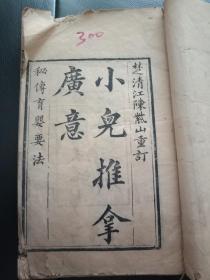 300
楚清江陳紫山重訂
小兒推拿
廣意
秘傳育嬰要法